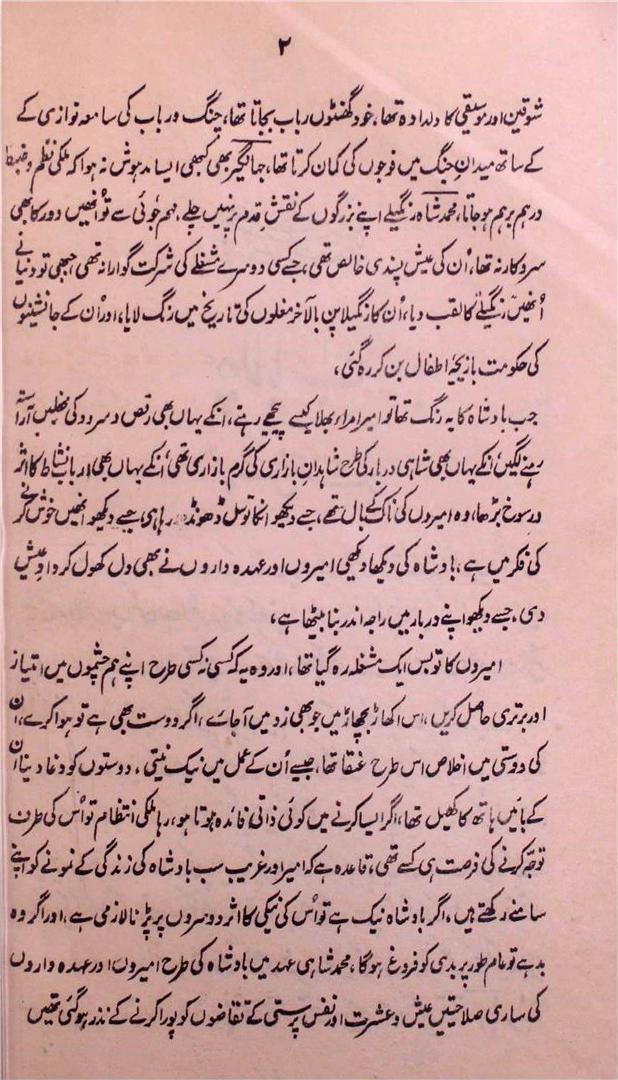 ۲
شوقین اور موسیقی کا دلدادہ تھا، خود گھنٹوں رباب بجاتا تھا، چنگ و رباب کی سامعہ نوازی کے
کے ساتھ میدانِ جنگ میں فوجوں کی کمان کرتا تھا، جہانگیر بھی کبھی ایسا مدہوش نہ ہوا کہ ملکی نظم و ضبط
درہم برہم ہو جاتا، محمد شاہ رنگیلے اپنے بزرگوں کے نقشِ قدم پر نہیں چلے، مہم جوئی سے تو اُنھیں دور کا بھی
سروکار نہ تھا، اُن کی عیش پسندی خالص تھی، جسے کسی دوسرے مشغلے کی شرکت گوارا نہ تھی جبھی تو دنیا نے
اُنھیں رنگیلے کا لقب دیا، اُن کا رنگیلا پن بالآخر مغلوں کی تاریخ میں رنگ لایا، اور اُن کے جانشینوں
کی حکومت بازیچۂ اطفال بن کر رہ گئی،
جب بادشاہ کا یہ رنگ تھا تو امیر امراء بھلا کیسے پیچھے رہتے، انکے یہاں بھی رقص و سرود کی محفلیں آراستہ
رہنے لگیں، انکے یہاں بھی شاہی دربار کی طرح شاہدانِ بازاری کی گرم بازاری تھی، انکے یہاں بھی اربابِ نشاط کا اثر
و رسوخ بڑھا، وہ امیروں کی ناک کے بال تھے، جسے دیکھو انکا توسل ڈھونڈھ رہا ہے، جسے دیکھو انھیں خوش کرنے
کی فکر میں ہے، بادشاہ کی دیکھا دیکھی امیروں اور عہدہ داروں نے بھی دل کھول کر دادِ عیش
دی، جسے دیکھو اپنے دربار میں راجہ اندر بنا بیٹھا ہے،
امیروں کا تو بس ایک مشغلہ رہ گیا تھا، اور وہ یہ کہ کسی نہ کسی طرح اپنے ہم چشموں میں امتیاز
اور برتری حاصل کریں، اس اکھاڑ پچھاڑ میں جو بھی زد میں آجائے، اگر دوست بھی ہے تو ہوا کرے، ان
کی دوستی میں اخلاص اس طرح عنقا تھا، جیسے اُن کے عمل میں نیک نیتی، دوستوں کو دغا دینا ان
کے بائیں ہاتھ کا کھیل تھا، اگر ایسا کرنے میں کوئی ذاتی فائدہ ہوتا ہو، رہا ملکی انتظام تو اُس کی طرف
توجہ کرنے کی فرصت ہی کسے تھی، قاعدہ ہے کہ امیر اور غریب سب بادشاہ کی زندگی کے نمونے کو اپنے
سامنے رکھتے ہیں، اگر بادشاہ نیک ہے تو اُس کی نیکی کا اثر دوسروں پر پڑنا لازمی ہے، اور اگر وہ
بد ہے تو عام طور پر بدی کو فروغ ہوگا، محمد شاہی عہد میں بادشاہ کی طرح امیروں اور عہدہ داروں
کی ساری صلاحیتیں عیش و عشرت اور نفس پرستی کے تقاضوں کو پورا کرنے کے نذر ہوگئی تھیں